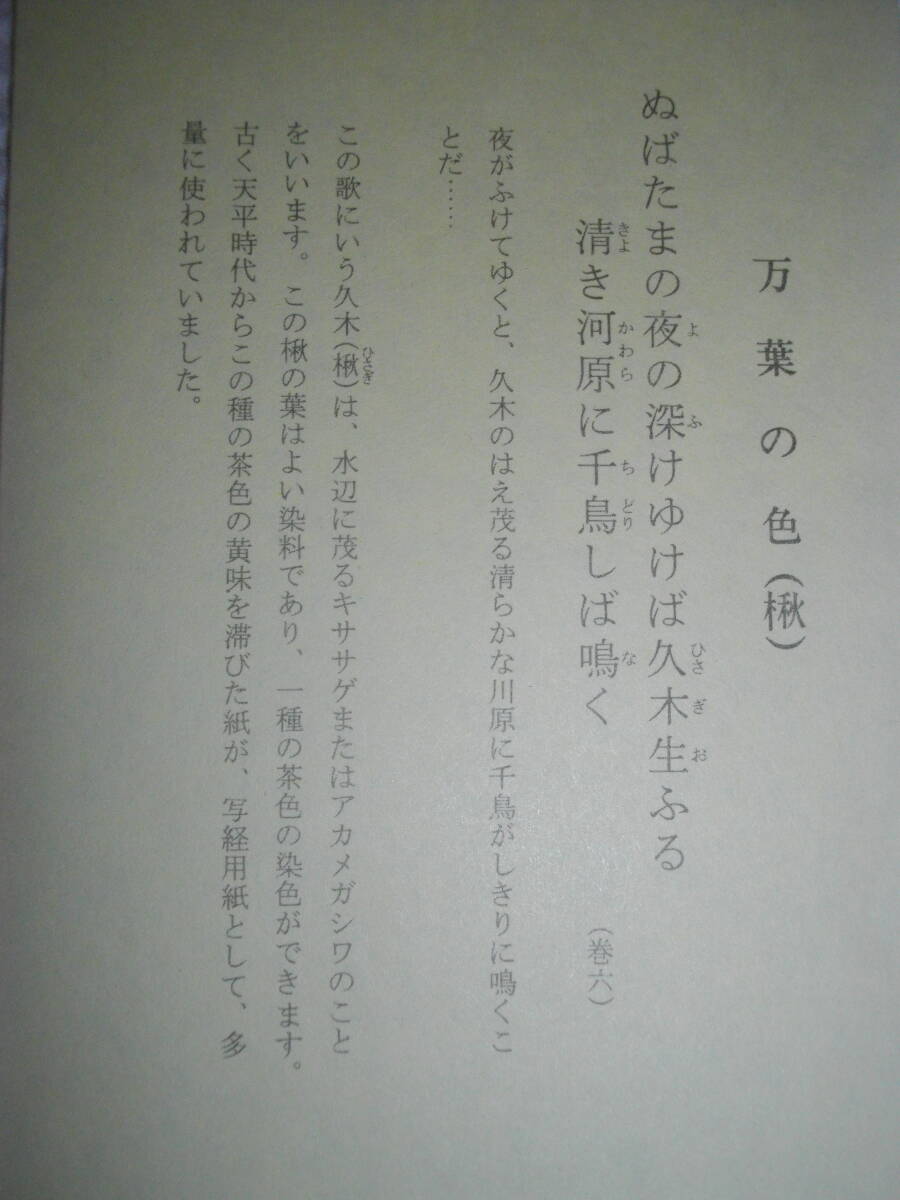 万葉の色（楸）
ぬばたまの夜の深けゆけば久木生ふる
清き河原に千鳥しば鳴く
（巻六）
夜がふけてゆくと、久木のはえ茂る清らかな川原に千鳥がしきりに鳴くこ
とだ……
この歌にいう久木（楸）は、水辺に茂るキササゲまたはアカメガシワのこと
をいいます。この楸の葉はよい染料であり、一種の茶色の染色ができます。
古く天平時代からこの種の茶色の黄味を滞びた紙が、写経用紙として、多
量に使われていました。